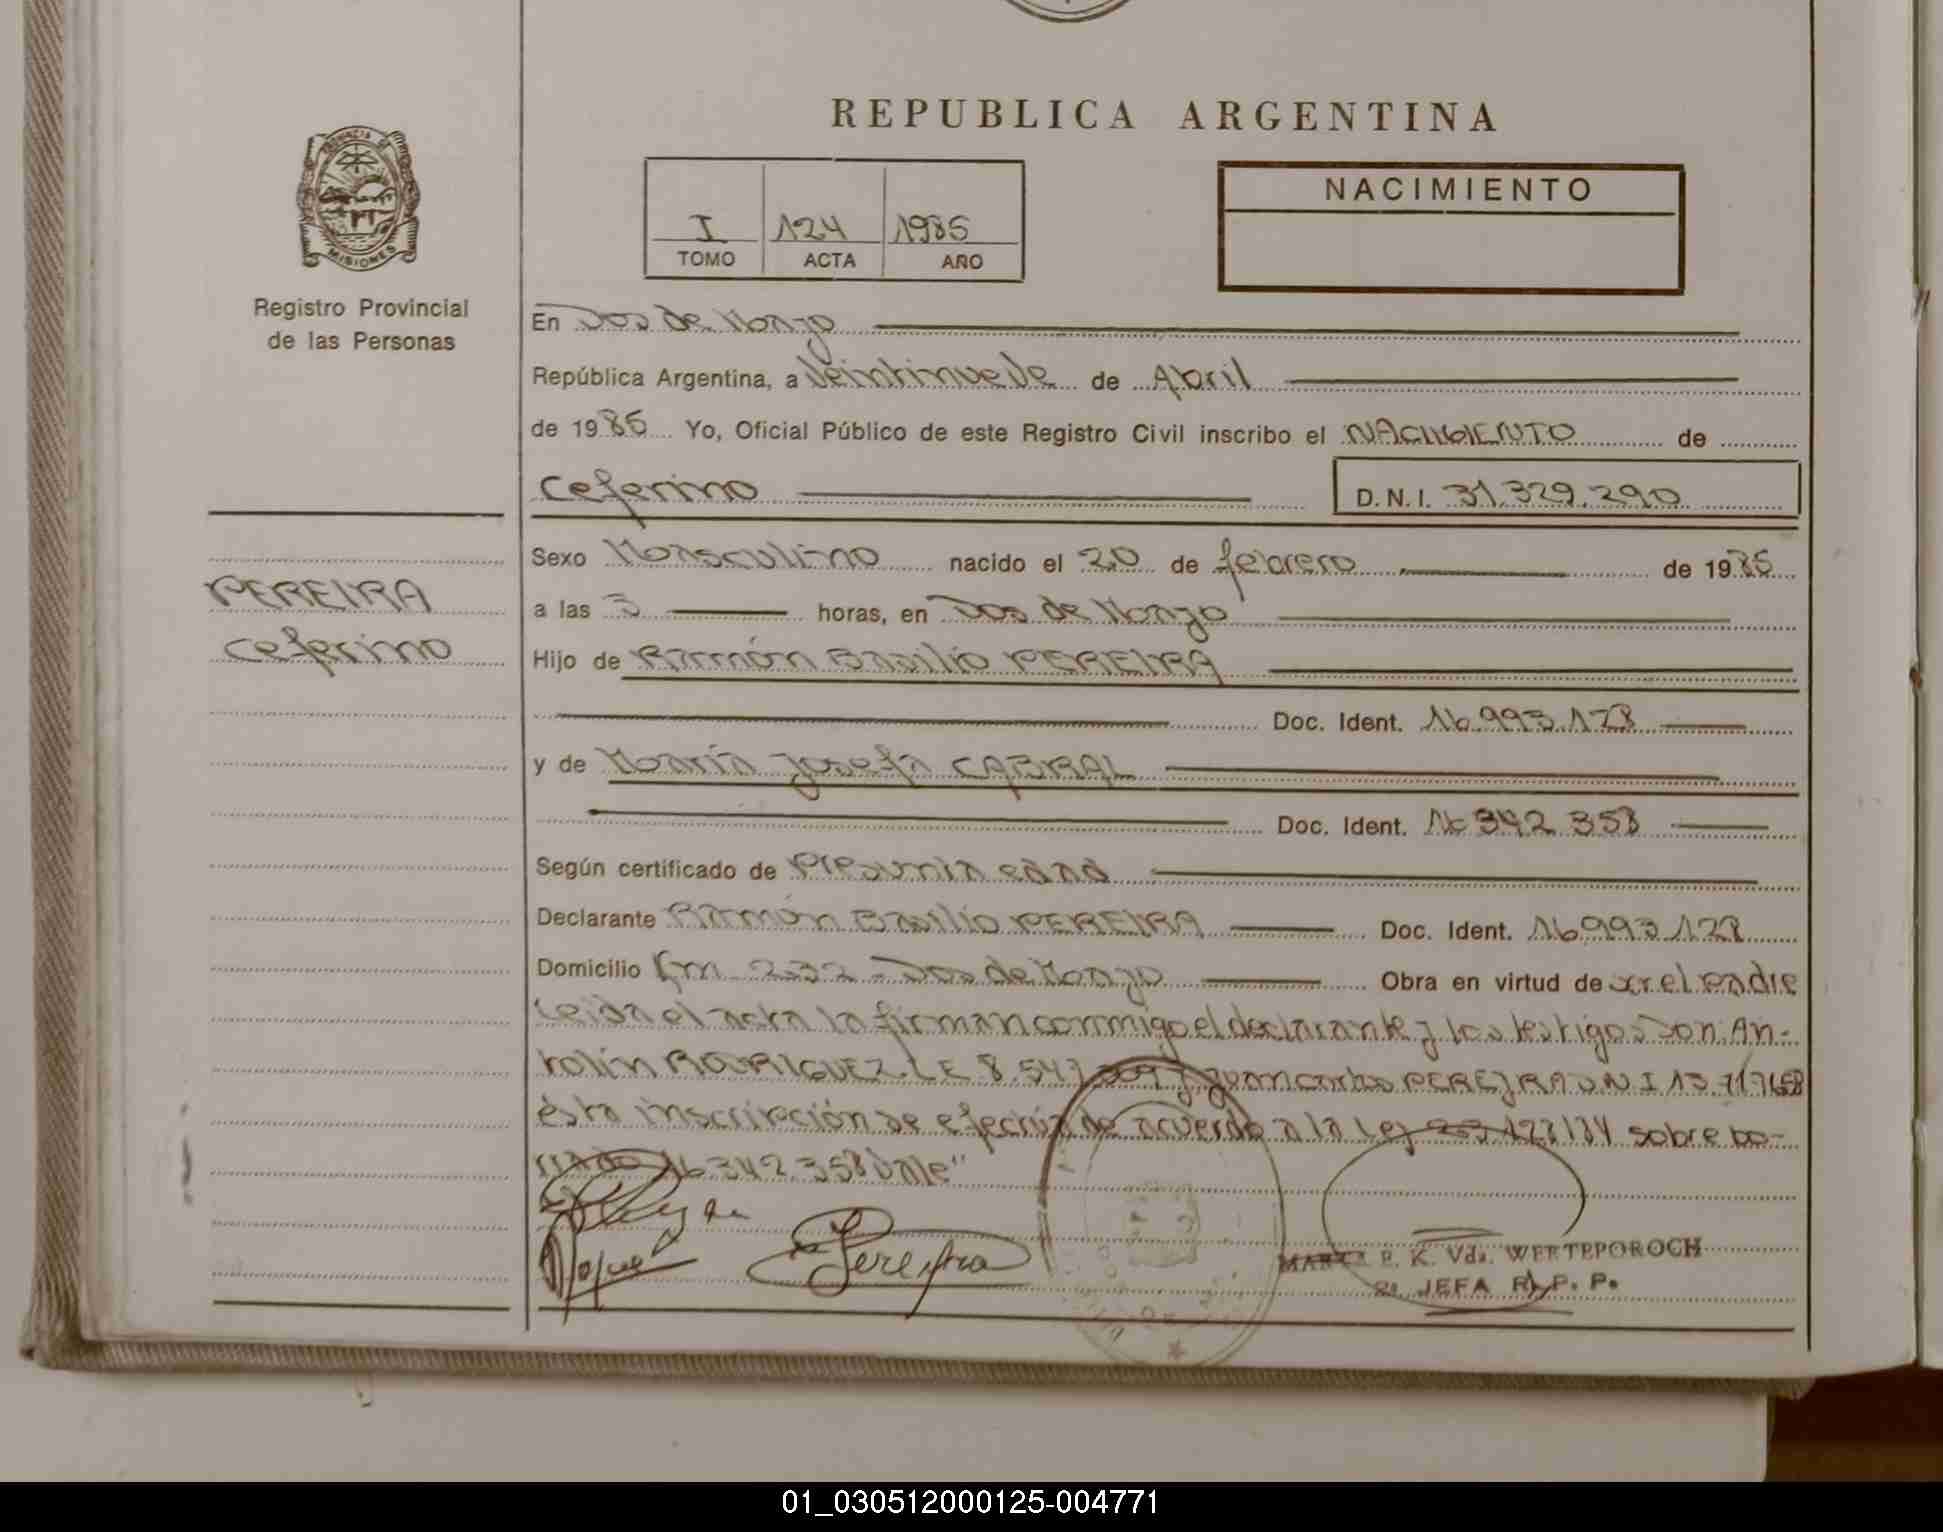 REPUBLICA ARGENTINA
PROVINCIA DE
MISIONES
Registro Provincial
de las Personas
I 124 1985
TOMO ACTA AÑO
NACIMIENTO
En Dos de Mayo
República Argentina, a Veintinueve de Abril
de 1985 Yo, Oficial Público de este Registro Civil inscribo el NACIMIENTO de
Ceferino D.N.I. 31.329.290
PEREIRA
Ceferino
Sexo Masculino nacido el 20 de febrero de 1985
a las 3 horas, en Dos de Mayo
Hijo de Ramón Basilio PEREIRA
Doc. Ident. 16.993.128
y de María Josefa CABRAL
Doc. Ident. 16 342 358
Según certificado de Presunta edad
Declarante Ramón Basilio PEREIRA Doc. Ident. 16.993.128
Domicilio Km 232 - Dos de Mayo Obra en virtud de ser el padre
Leida el acta la firman conmigo el declarante y los testigos Don An-
tolín RODRIGUEZ L E 8.547.309 y Juan Carlos PEREIRA D N I 13.
ésta inscripción se efectúa de acuerdo a la Ley sobre bo-
rrado 16.342.358 Vale"
Pereira
P. K. Vda. WERTEPOROCH
JEFA R. P. P.
01_030512000125-004771